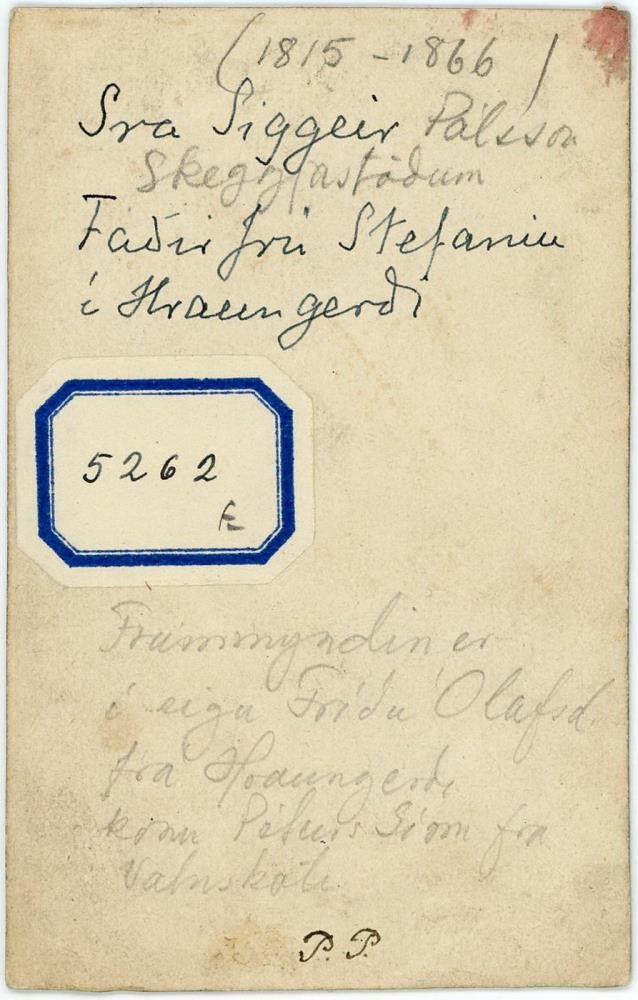 (1815-1866)
Sra Siggeir Pálsson
Skeggjastöðum
Faðir frú Stefaniu
í Hraungerði
5262
E
Frummyndin er
í eigu Fríðu Ólafsd.
frá Hraungerði
konu Péturs frá
Vatnskoti
P.P.